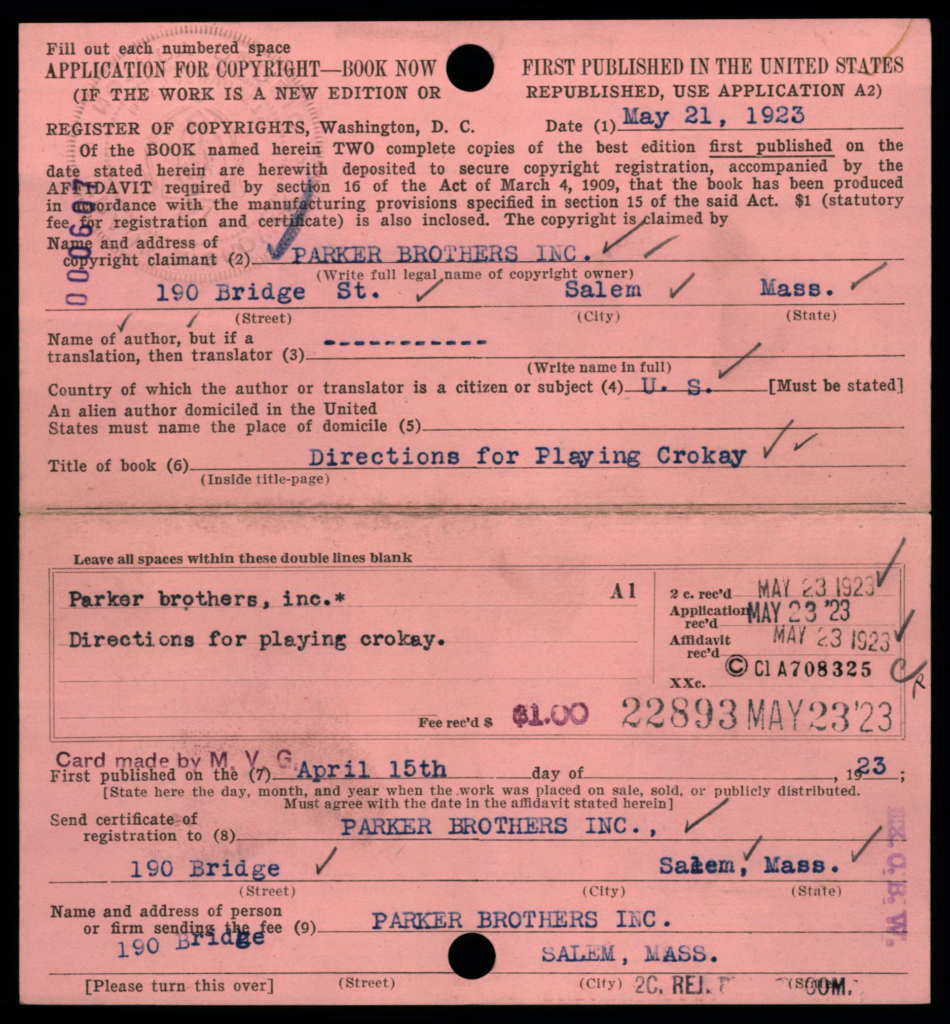 Fill out each numbered space
APPLICATION FOR COPYRIGHT—BOOK NOW FIRST PUBLISHED IN THE UNITED STATES
(IF THE WORK IS A NEW EDITION OR REPUBLISHED, USE APPLICATION A2)
REGISTER OF COPYRIGHTS, Washington, D. C. Date (1) May 21, 1923
Of the BOOK named herein TWO complete copies of the best edition first published on the
date stated herein are herewith deposited to secure copyright registration, accompanied by the
AFFIDAVIT required by section 16 of the Act of March 4, 1909, that the book has been produced
in accordance with the manufacturing provisions specified in section 15 of the said Act. $1 (statutory
fee for registration and certificate) is also inclosed. The copyright is claimed by
Name and address of
copyright claimant (2) PARKER BROTHERS INC.
(Write full legal name of copyright owner)
190 Bridge St. Salem Mass.
(Street) (City) (State)
Name of author, but if a
translation, then translator (3) -----------
(Write name in full)
Country of which the author or translator is a citizen or subject (4) U. S. [Must be stated]
An alien author domiciled in the United
States must name the place of domicile (5)
Title of book (6) Directions for Playing Crokay
(Inside title-page)
Leave all spaces within these double lines blank
Parker brothers, inc.* A1
Directions for playing crokay.
2 c. rec'd MAY 23 1923
Application rec'd MAY 23 '23
Affidavit rec'd MAY 23 1923
© Cl A708325
XXc.
Fee rec'd $ $1.00 22893 MAY 23 '23
Card made by M. V. G.
First published on the (7) April 15th day of , 1923;
[State here the day, month, and year when the work was placed on sale, sold, or publicly distributed.
Must agree with the date in the affidavit stated herein]
Send certificate of
registration to (8) PARKER BROTHERS INC.,
190 Bridge Salem, Mass.
(Street) (City) (State)
EX. O. B. W.
Name and address of person
or firm sending the fee (9) PARKER BROTHERS INC.
190 Bridge SALEM, MASS.
[Please turn this over] (Street) (City) 2C. REJ. (State) COM.